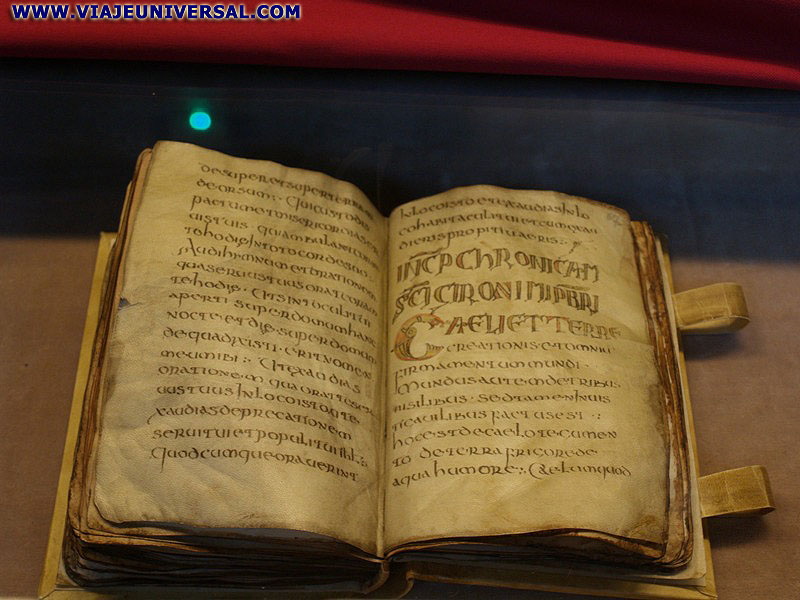 WWW.VIAJEUNIVERSAL.COM
desuperetsuperterram
deorsum·: Quicustodis
pactumetmisericordiam
uistuis quiambulant
tehodie Intotocordesuo
Audihymnumetorationem
quaseruustuusoratcoram
tehodie· Utsintoculitui
aperti superdomumhanc
nocteetdie·superdomum
dequadixisti·eritnomen
meumibi:· Utexaudias
orationem quaoratteser
uustuus Inlocoisto
xaudiasdeprecationem
seruituietpopulitui
Quodcumqueorauerint
Inlocoistoetexaudiasinlo
cohabitaculituietcumexau
dierispropitiuseris:·
INCP CHRONICAM
SCI CIRONIMI PBRI
CAELIETTERRE
creationisetomniu
firmamentummundi·
Mundusautemdetribus
uisilibus·sedtameninuis
factusest:·
hocestdecaelotecumen
to deterrafricorede
aquahumore:· Caelumquod